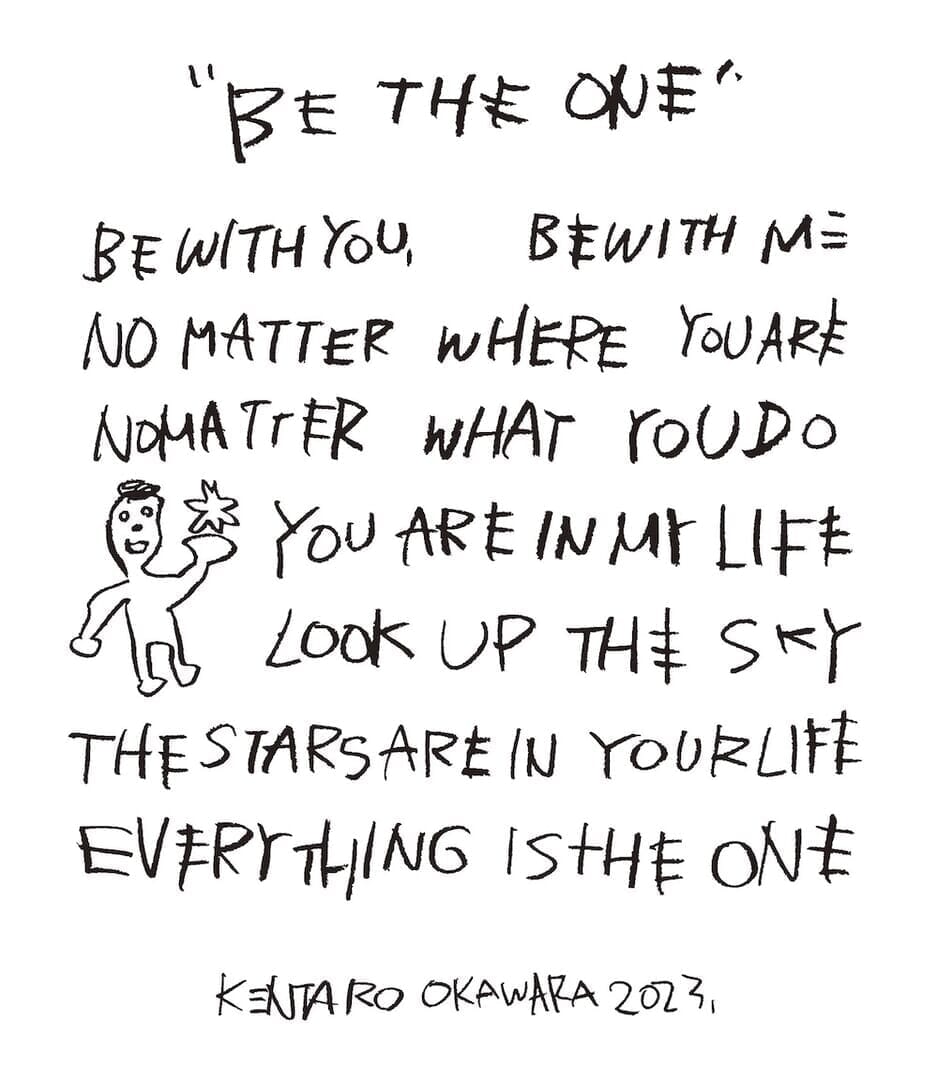 "BE THE ONE"
BE WITH YOU, BE WITH ME
NO MATTER WHERE YOU ARE
NO MATTER WHAT YOU DO
YOU ARE IN MY LIFE
LOOK UP THE SKY
THE STARS ARE IN YOUR LIFE
EVERYTHING IS THE ONE
KENTARO OKAWARA 2023,